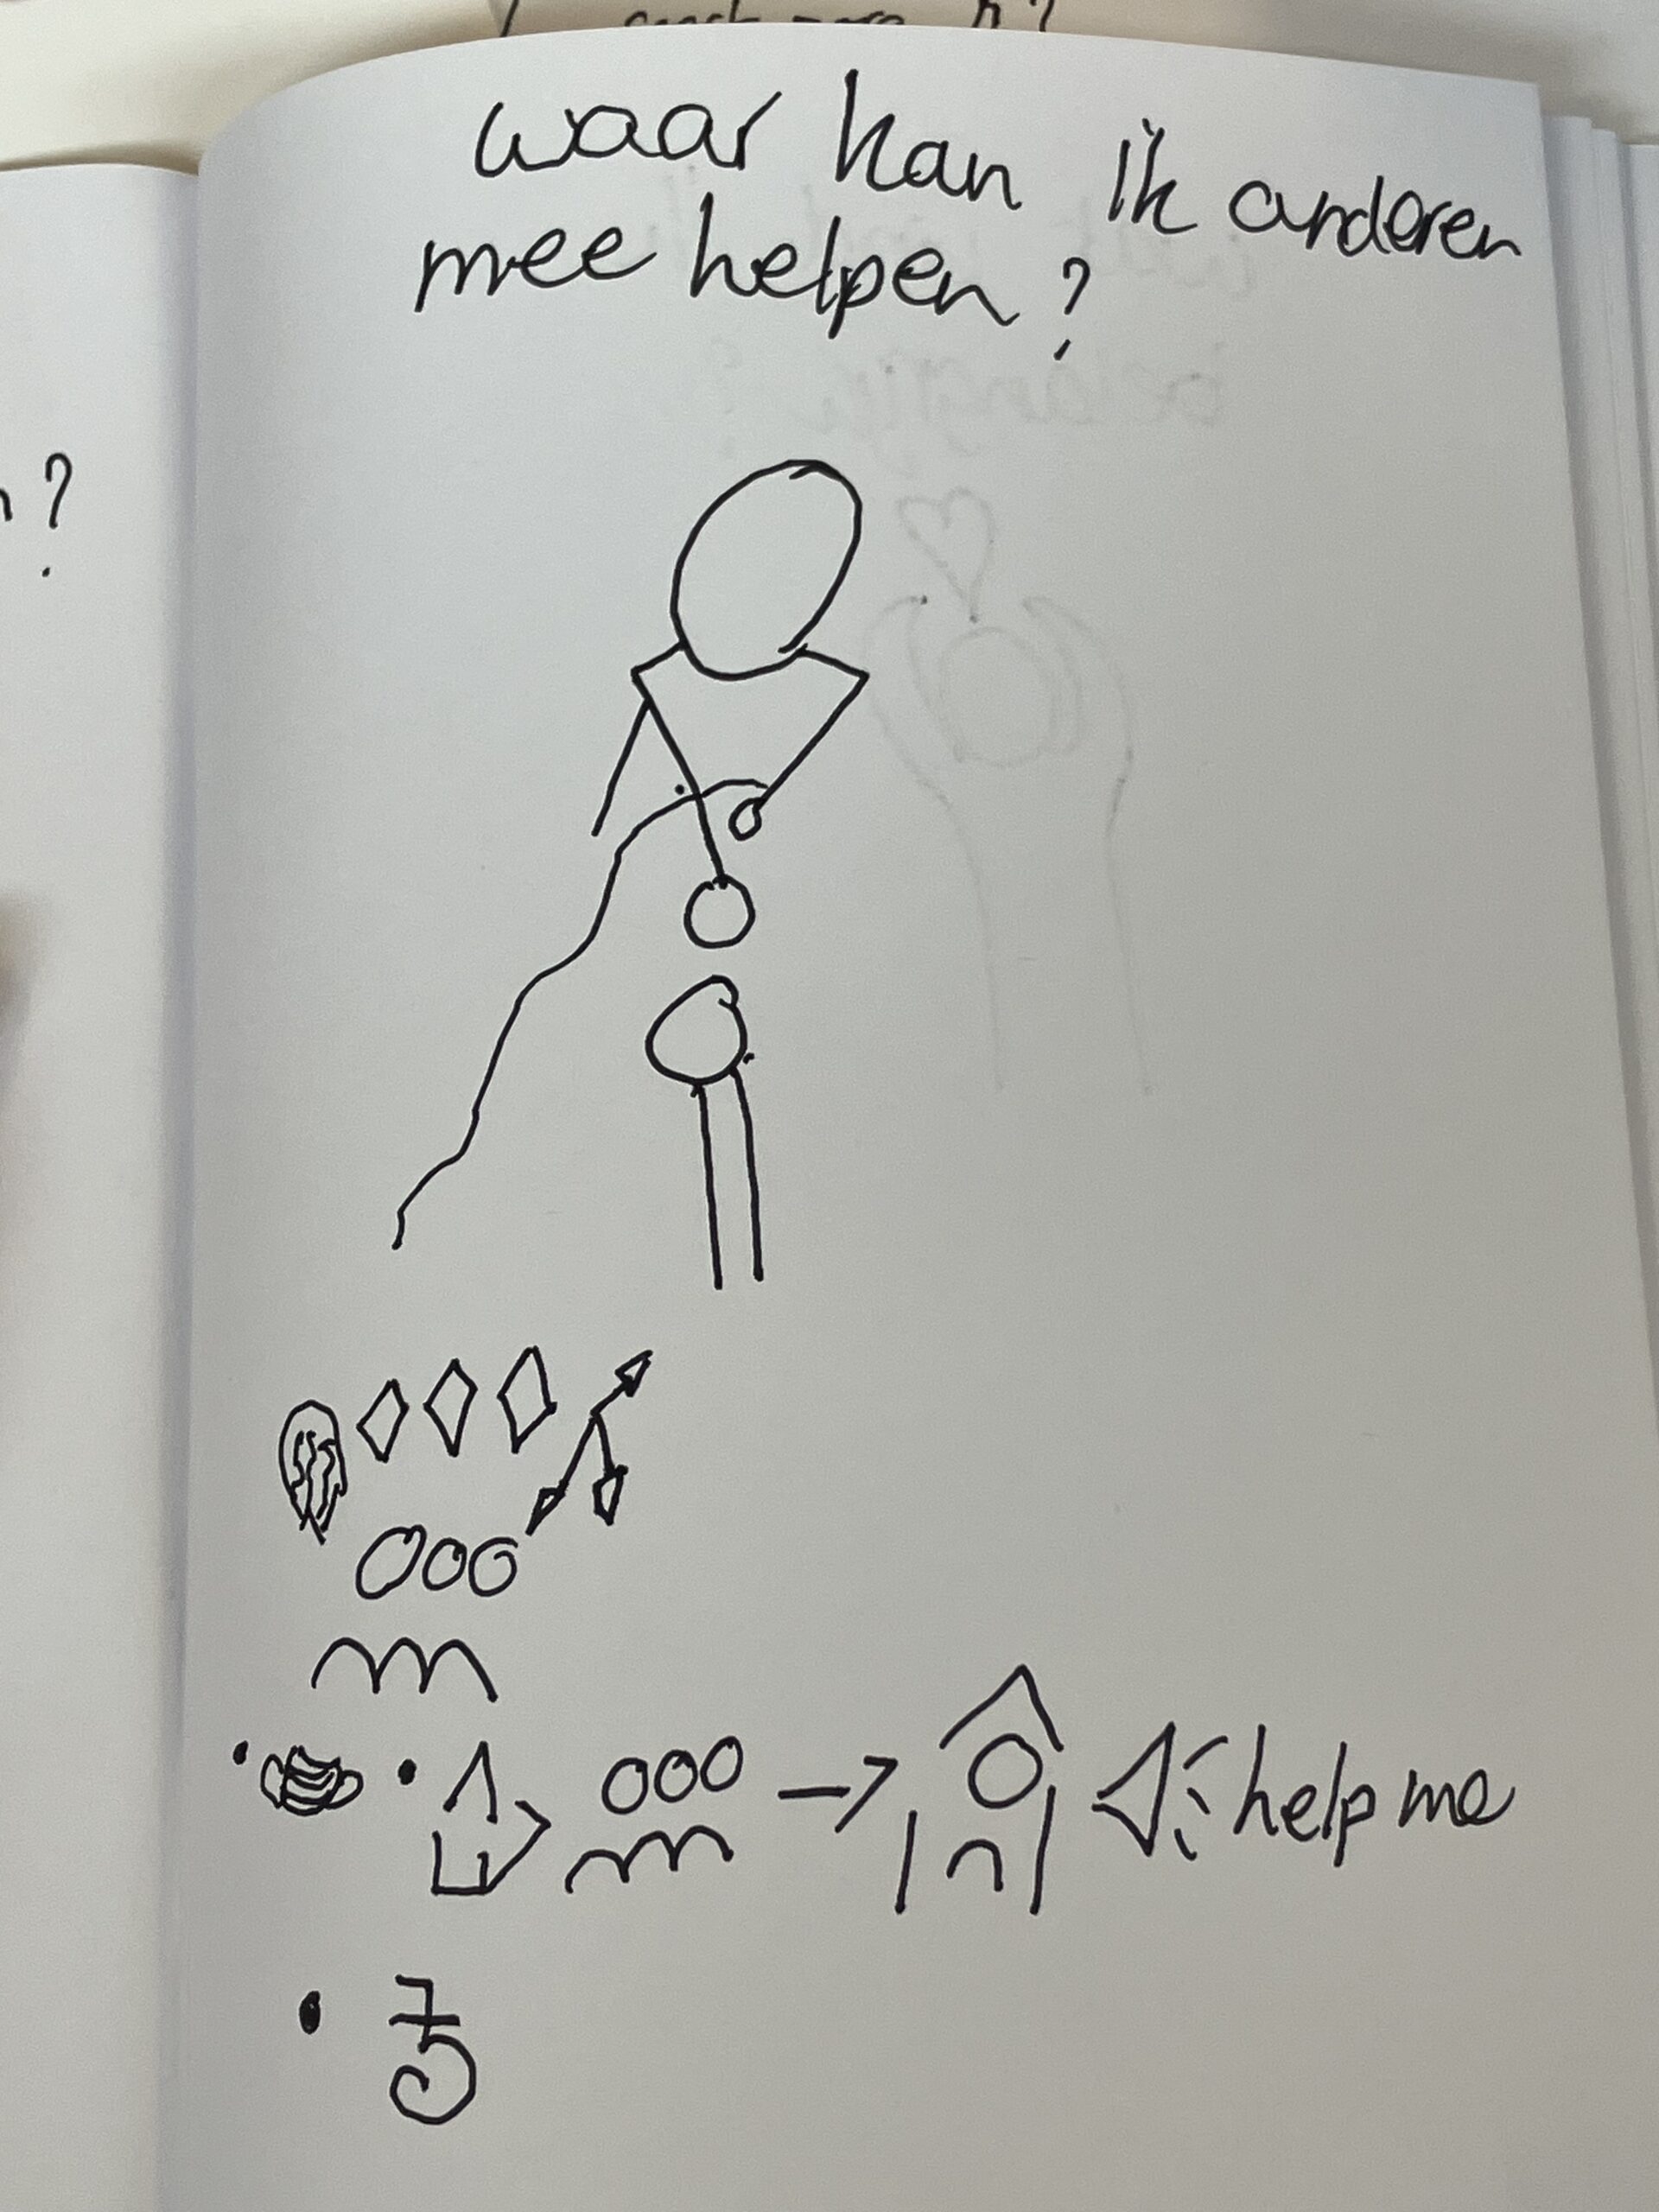 waar kan ik anderen
mee helpen?
n?
help me